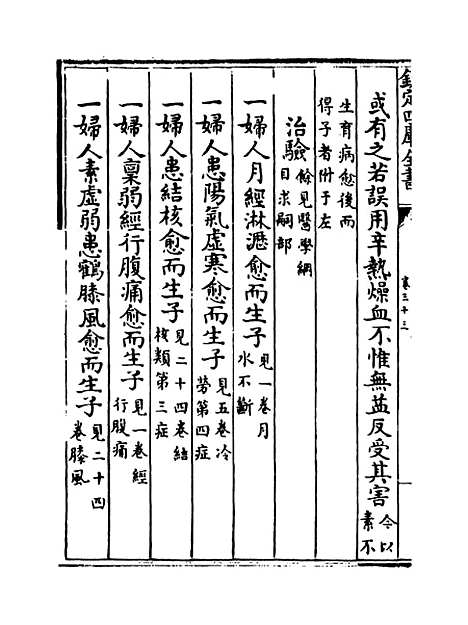 欽定四庫全書
卷三十三
或有之若誤用辛熱燥血不惟無益反受其害今以素不
生育病愈後而得子者附于左
治驗餘見醫學綱目求嗣部
一婦人月經淋瀝愈而生子見一卷月水不斷
一婦人患陽氣虛寒愈而生子見五卷冷勞第四症
一婦人患結核愈而生子見二十四卷結核類第三症
一婦人稟弱經行腹痛愈而生子見一卷經行腹痛
一婦人素虛弱患鶴膝風愈而生子見二十四卷膝風